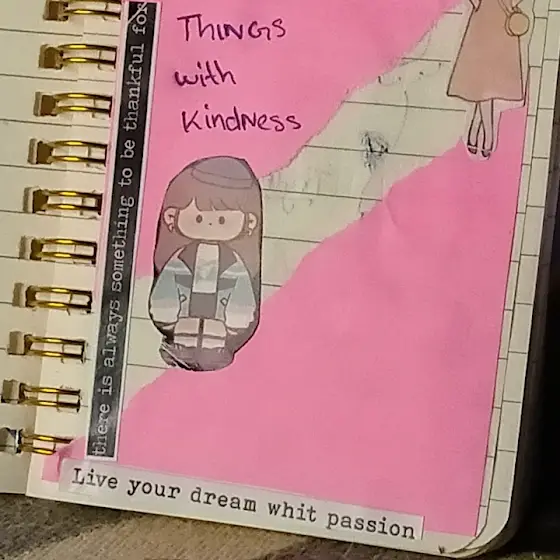 Things
with
Kindness
there is always something to be thankful for
Live your dream whit passion